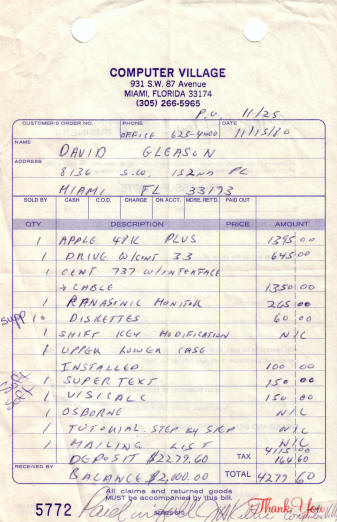 COMPUTER VILLAGE
931 S.W. 87 Avenue
MIAMI, FLORIDA 33174
(305) 266-5965
P.U. 11/25
CUSTOMER'S ORDER NO. PHONE DATE
OFFICE 625-4400 11/15/80
NAME
DAVID GLEASON
ADDRESS
8136 S.W. 152ND PL
MIAMI FL 33193
SOLD BY CASH C.O.D. CHARGE ON ACCT. MDSE. RETD. PAID OUT
QTY DESCRIPTION PRICE AMOUNT
1 APPLE 48K PLUS 1395 00
1 DRIVE W/CONT 3.3 645 00
1 CENT 737 W/INTERFACE
+ CABLE 1350 00
1 PANASONIC MONITOR 265 00
supp 10 DISKETTES 60 00
1 SHIFT KEY MODIFICATION N/C
1 UPPER LOWER CASE
INSTALLED 100 00
soft 1 SUPER TEXT 150 00
soft 1 VISICALC 150 00
1 OSBORNE N/C
1 TUTORIAL. STEP by STEP N/C
1 MAILING LIST N/C
4115 00
DEPOSIT $2279.60 TAX 164 60
RECEIVED BY
BALANCE $2,000.00 TOTAL 4279 60
All claims and returned goods
MUST be accompanied by this bill.
5772 Paid in full
Thank You